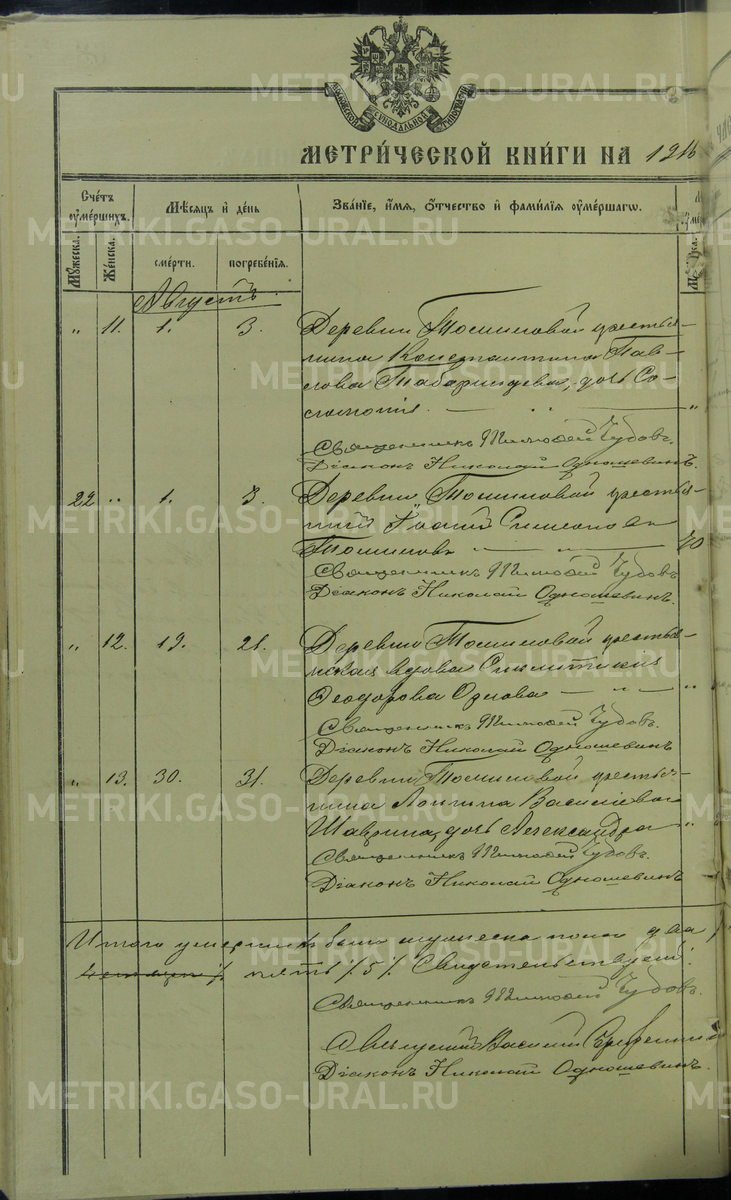 МОСКОВСКОЙ СѴНОДАЛЬНОЙ ТИПОГРАФІИ
МЕТРИ́ЧЕСКОЙ КНИ́ГИ НА 1916
Счетъ ᲂу҆ме́ршихъ.
Му́жеска.
Же́нска.
Мѣ́сѧцъ и҆ де́нь
сме́рти.
погребе́нїѧ.
Зва́нїе, и҆́мѧ, ѻ҆́тчество и҆ фами́лїѧ ᲂу҆ме́ршагѡ.
Августъ.
" 11. 1. 3. Деревни Томиловой крестья-
нина Константина Пав-
лова Табаринцева, дочь Со-
ломонія. — " — "
Священникъ Тимоѳей Чудовъ.
Діаконъ Николай Одношевинъ.
22 " 1. 3. Деревни Томиловой крестья-
нинъ Симеоновъ
Томиловъ — " — 70
Священникъ Тимоѳей Чудовъ
Діаконъ Николай Одношевинъ.
" 12. 19. 21. Деревни Томиловой крестья-
нская вдова Синклитикія
Ѳеодорова — " — "
Священникъ Тимоѳей Чудовъ.
Діаконъ Николай Одношевинъ
" 13. 30. 31. Деревни Томиловой крестья-
нина Лонгина Василіева
Шаврина, дочь Александра "
Священникъ Тимоѳей Чудовъ.
Діаконъ Николай Одношевинъ
Итого умершихъ было мужеска пола два
пять /5/. Свидетельствуемъ:
Священникъ Тимоѳей Чудовъ.
Василій
Діаконъ Николай Одношевинъ.
METRIKI.GASO-URAL.RU